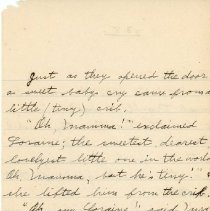 Just as they opened the door
a sweet baby cry came from a
little (tiny) crib.
"Oh, Mamma!" exclaimed
Loraine; the sweetest, dearest
loveliest little one in the world
Oh, Mamma, but he's tiny!"
she lifted him from the crib.
"Oh, my Loraine" said